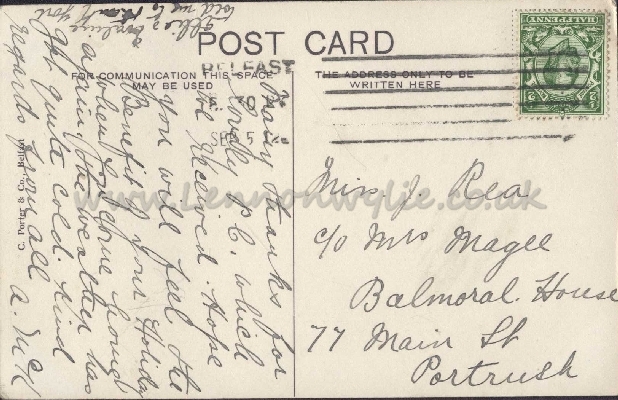 POST CARD
FOR COMMUNICATION THIS SPACE
MAY BE USED
THE ADDRESS ONLY TO BE
WRITTEN HERE
BELFAST
SEP 5
HALFPENNY
Many thanks for
lovely P.C. which
we received. Hope
you will feel the
Benefit of your Holiday
when you come home
again. The weather has
got quite cold. Kind
regards from all
A. McK
told me to thank you
Miss J. Rea
c/o Mrs Magee
Balmoral House
77 Main St
Portrush
C. Porter & Co., Belfast
www.Lennonwylie.co.uk